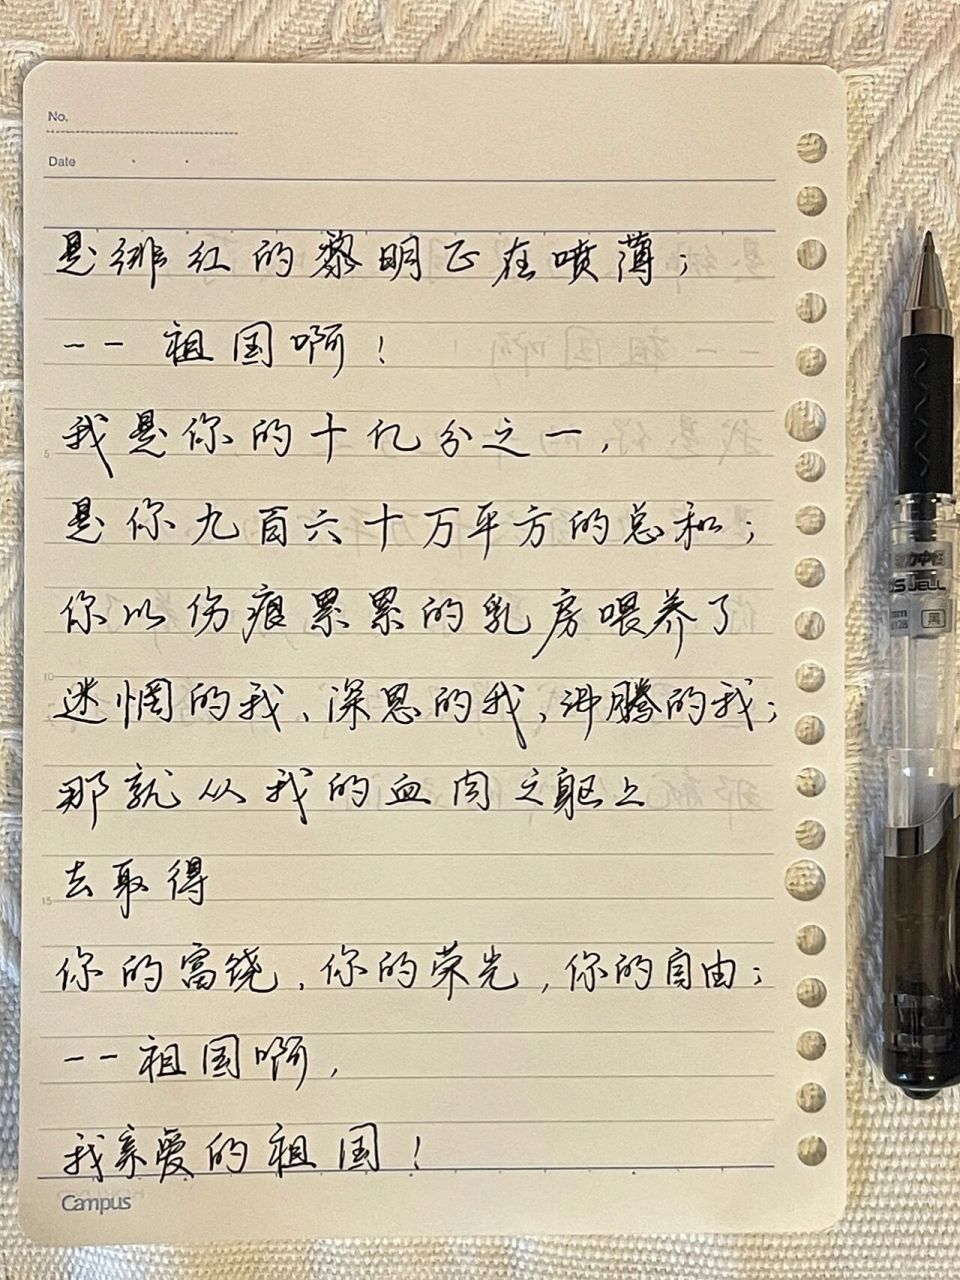 No.
Date
是绯红的黎明正在喷薄；
-- 祖国啊！
我是你的十亿分之一，
5
是你九百六十万平方的总和；
你以伤痕累累的乳房喂养了
10
迷惘的我、深思的我、沸腾的我；
那就从我的血肉之躯上
去取得
15
你的富饶，你的荣光，你的自由；
--祖国啊，
我亲爱的祖国！
Campus
JELL
黑